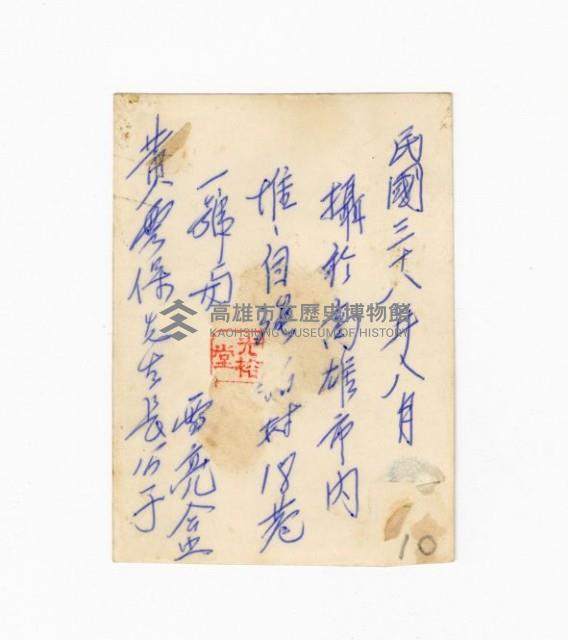 民國三十八年八月
攝於高雄市內
堆、自強新村18巷
一號內
黃雲保先生長公子
雷亮全
光裕堂
高雄市立歷史博物館
KAOHSIUNG MUSEUM OF HISTORY
10